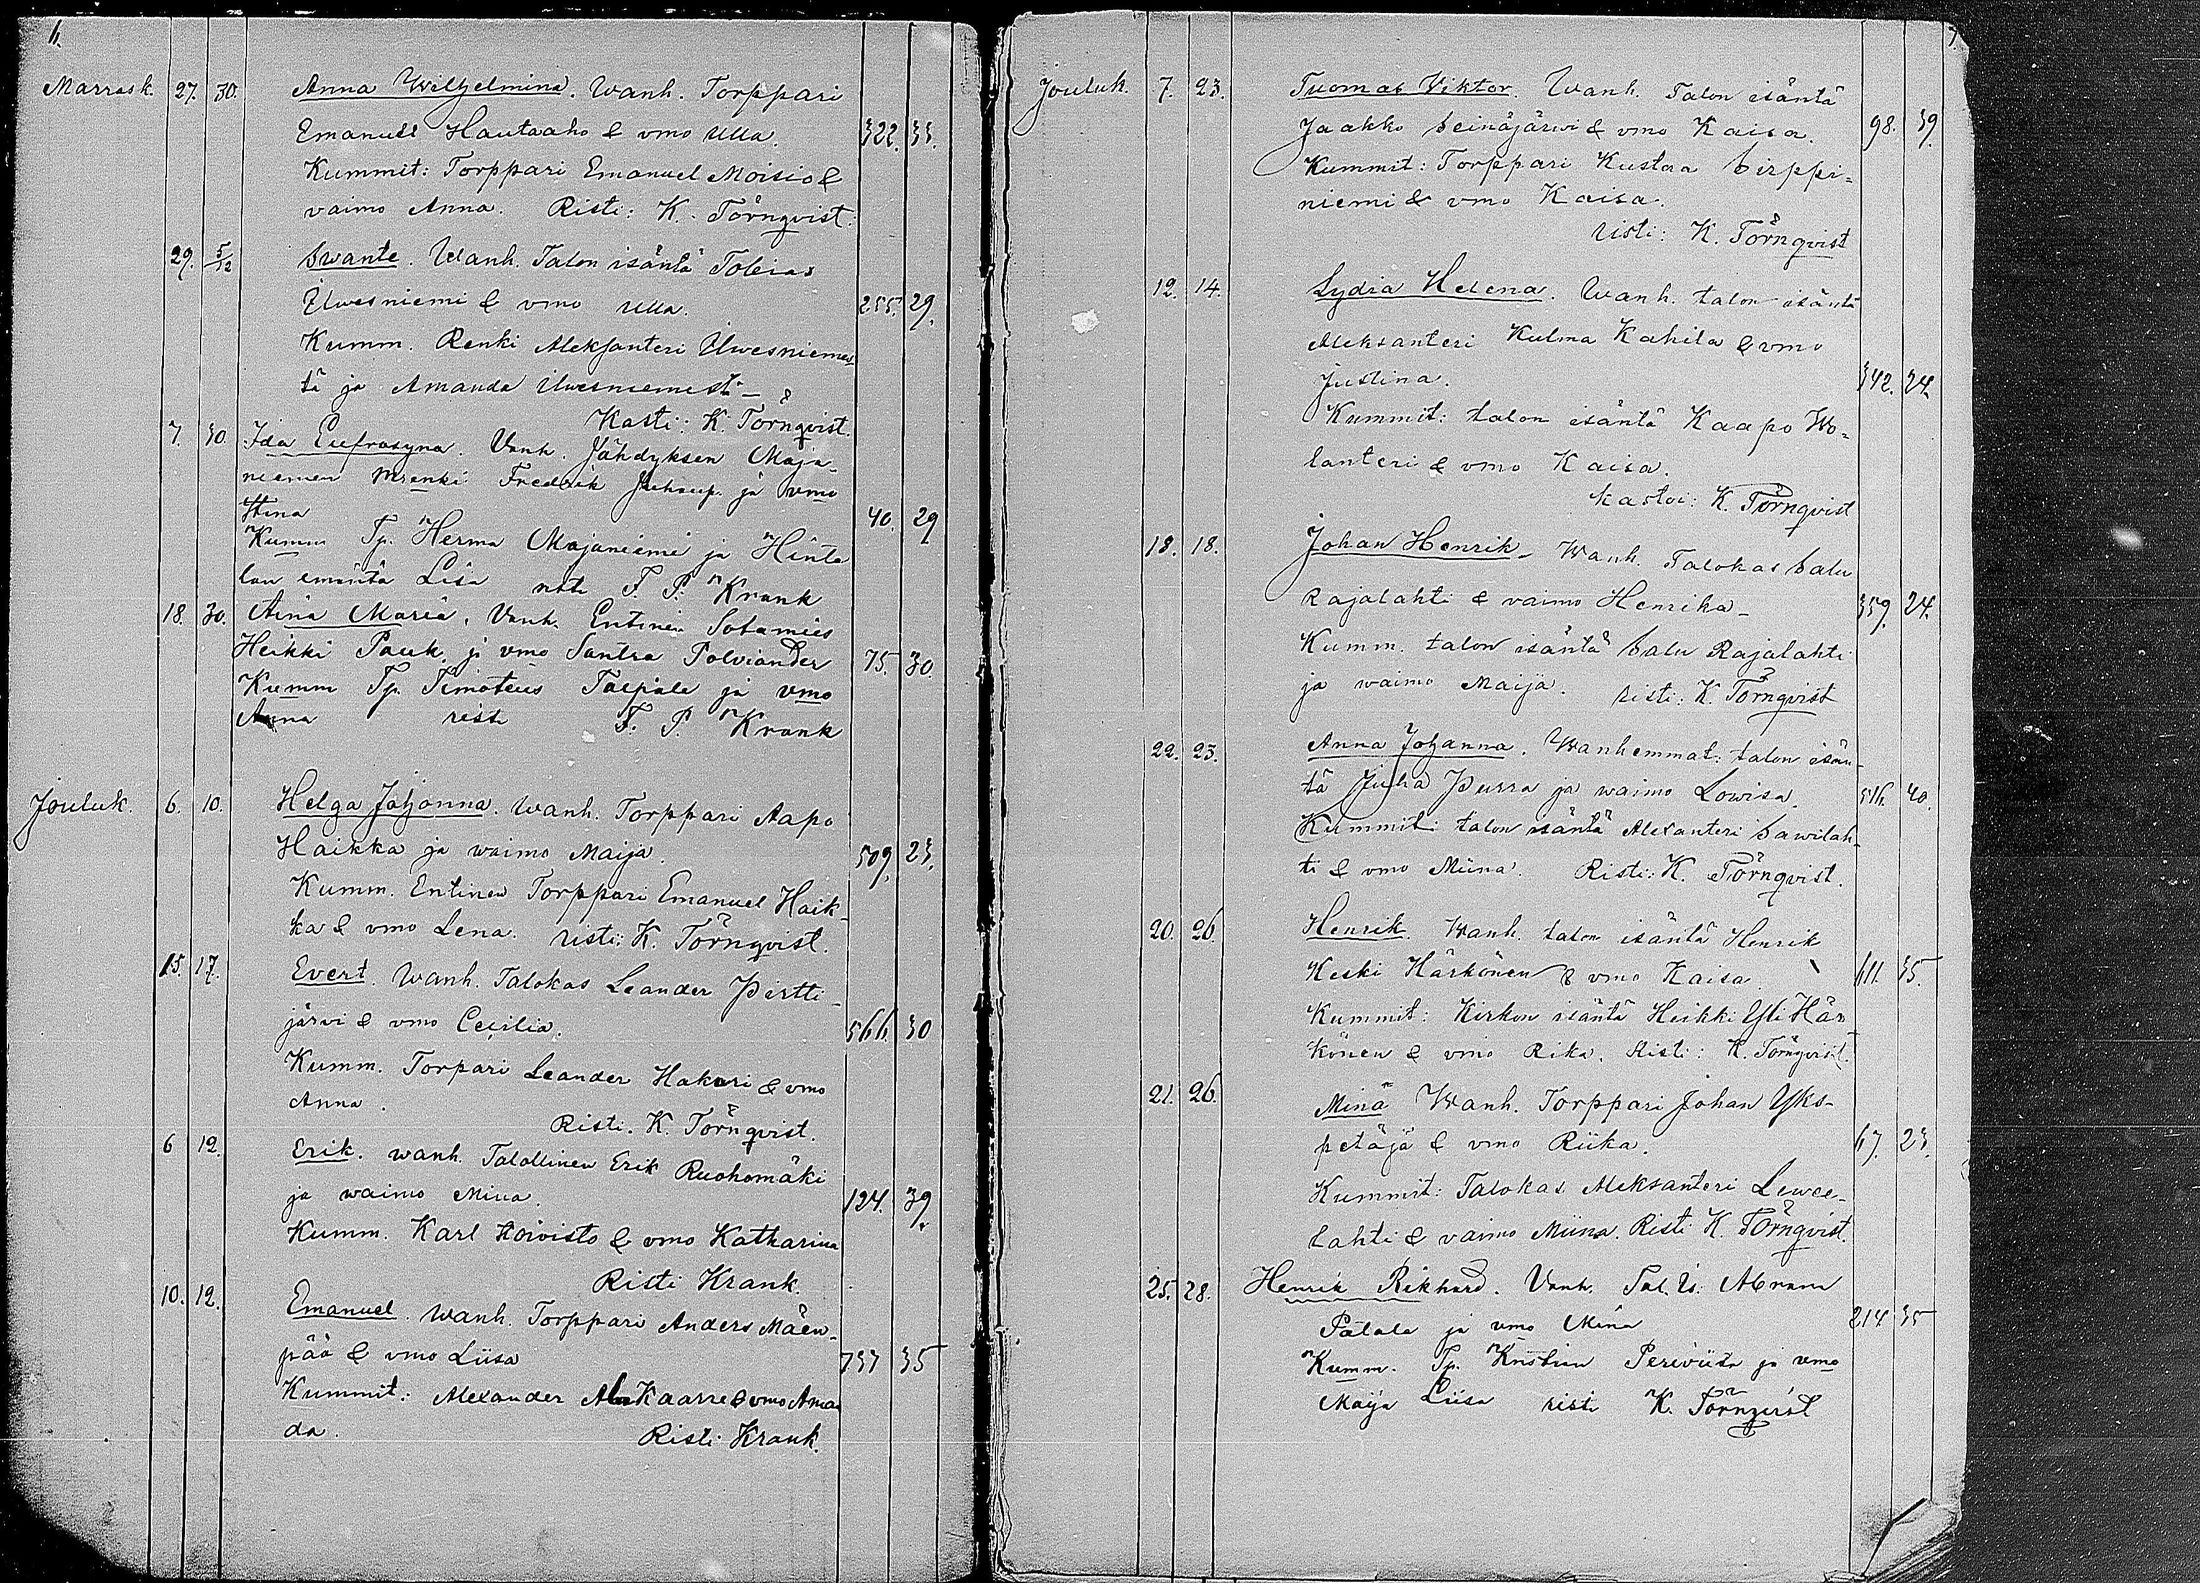 6.
Marrask. 27. 30. Anna Wilhelmina. Wanh. Torppari
Emanuel Hautaaho & vmo Ulla. 322. 33.
Kummit: Torppari Emanuel Moisio &
vaimo Anna. Risti: K. Törnqvist.
29. 5/12 Swante. Wanh. Talon isäntä Tobias
Ilwesniemi & vmo Ulla. 255. 29.
Kumm. Renki Aleksanteri Ilwesniemes-
tä ja Amanda Ilwesniemest-
Kasti: K. Törnqvist.
7. 30. Ida Eufrosyna. Vanh. Jähdyksen Maja-
niemen renki Fredrik Juhanp. ja vmo
Stina 40. 29
Kumm Tp. Herma Majaniemi ja Hinta
lan emäntä Lisa risti F. P. Krank
18. 30. Aina Maria. Vanh. Entinen Sotamies
Heikki Pauk. ja vmo Santra Polviander 75. 30.
Kumm Tp. Timoteus Taipale ja vmo
Anna risti F. P. Krank
Jouluk. 6. 10. Helga Johanna. Wanh. Torppari Aapo
Haikka ja waimo Maija. 509. 23.
Kumm. Entinen Torppari Emanuel Haik-
ka & vmo Lena. risti: K. Törnqvist.
15. 17. Evert. Wanh. Talokas Leander Pirtti-
järvi & vmo Cecilia. 566. 30
Kumm. Torpari Leander Hakari & vmo
Anna.
Risti. K. Törnqvist.
6 12. Erik. wanh. Talollinen Erik Ruohomäki
ja waimo Miina. 124. 39.
Kumm. Karl Koivisto & vmo Katharina
Risti Krank.
10. 12. Emanuel. Wanh. Torppari Anders Mäen-
pää & vmo Liisa 737 35
Kummit: Alexander Ala Kaarre & vmo Aman
da. Risti Krank.
7.
Jouluk. 7. 23. Tuomas Viktor. Wanh. Talon isäntä
Jaakko Seinäjärwi & vmo Kaisa. 98. 39.
Kummit: Torppari Kustaa Sirppi-
niemi & vmo Kaisa.
risti: K. Törnqvist
12. 14. Lydia Helena. Wanh. talon isäntä
Aleksanteri Kulma Kahila & vmo
Justina. 342. 24.
Kummit: talon isäntä Kaapo Wo-
lanteri & vmo Kaisa.
kastoi: K. Törnqvist
18. 18. Johan Henrik- Wanh. Talokas Salu
Rajalahti & vaimo Henrika- 359. 24.
Kumm. talon isäntä Salu Rajalahti
ja waimo Maija. risti: K. Törnqvist
22. 23. Anna Johanna. Wanhemmat: talon isän-
tä Juha Purra ja waimo Lowisa. 516. 40.
Kummit: talon isäntä Alexanteri Sawilah-
ti & vmo Miina. Risti: K. Törnqvist.
20. 26. Henrik. Wanh. talon isäntä Henrik
Keski Härkönen & vmo Kaisa. 611. 35.
Kummit: Kirkon isäntä Heikki Yli Här-
könen & vmo Rika. Risti: K. Törnqvist.
21. 26. Minä Wanh. Torppari Johan Yks-
petäjä & vmo Riika. 67. 23.
Kummit: Talokas Aleksanteri
lahti & vaimo Miina. Risti K. Törnqvist.
25. 28. Henrik Rikhard. Vanh. Tal. is. Abram
Patala ja vmo Mina 214 35
Kumm. Tp. Kristian ja vmo
Maija Liisa risti K. Törnqvist